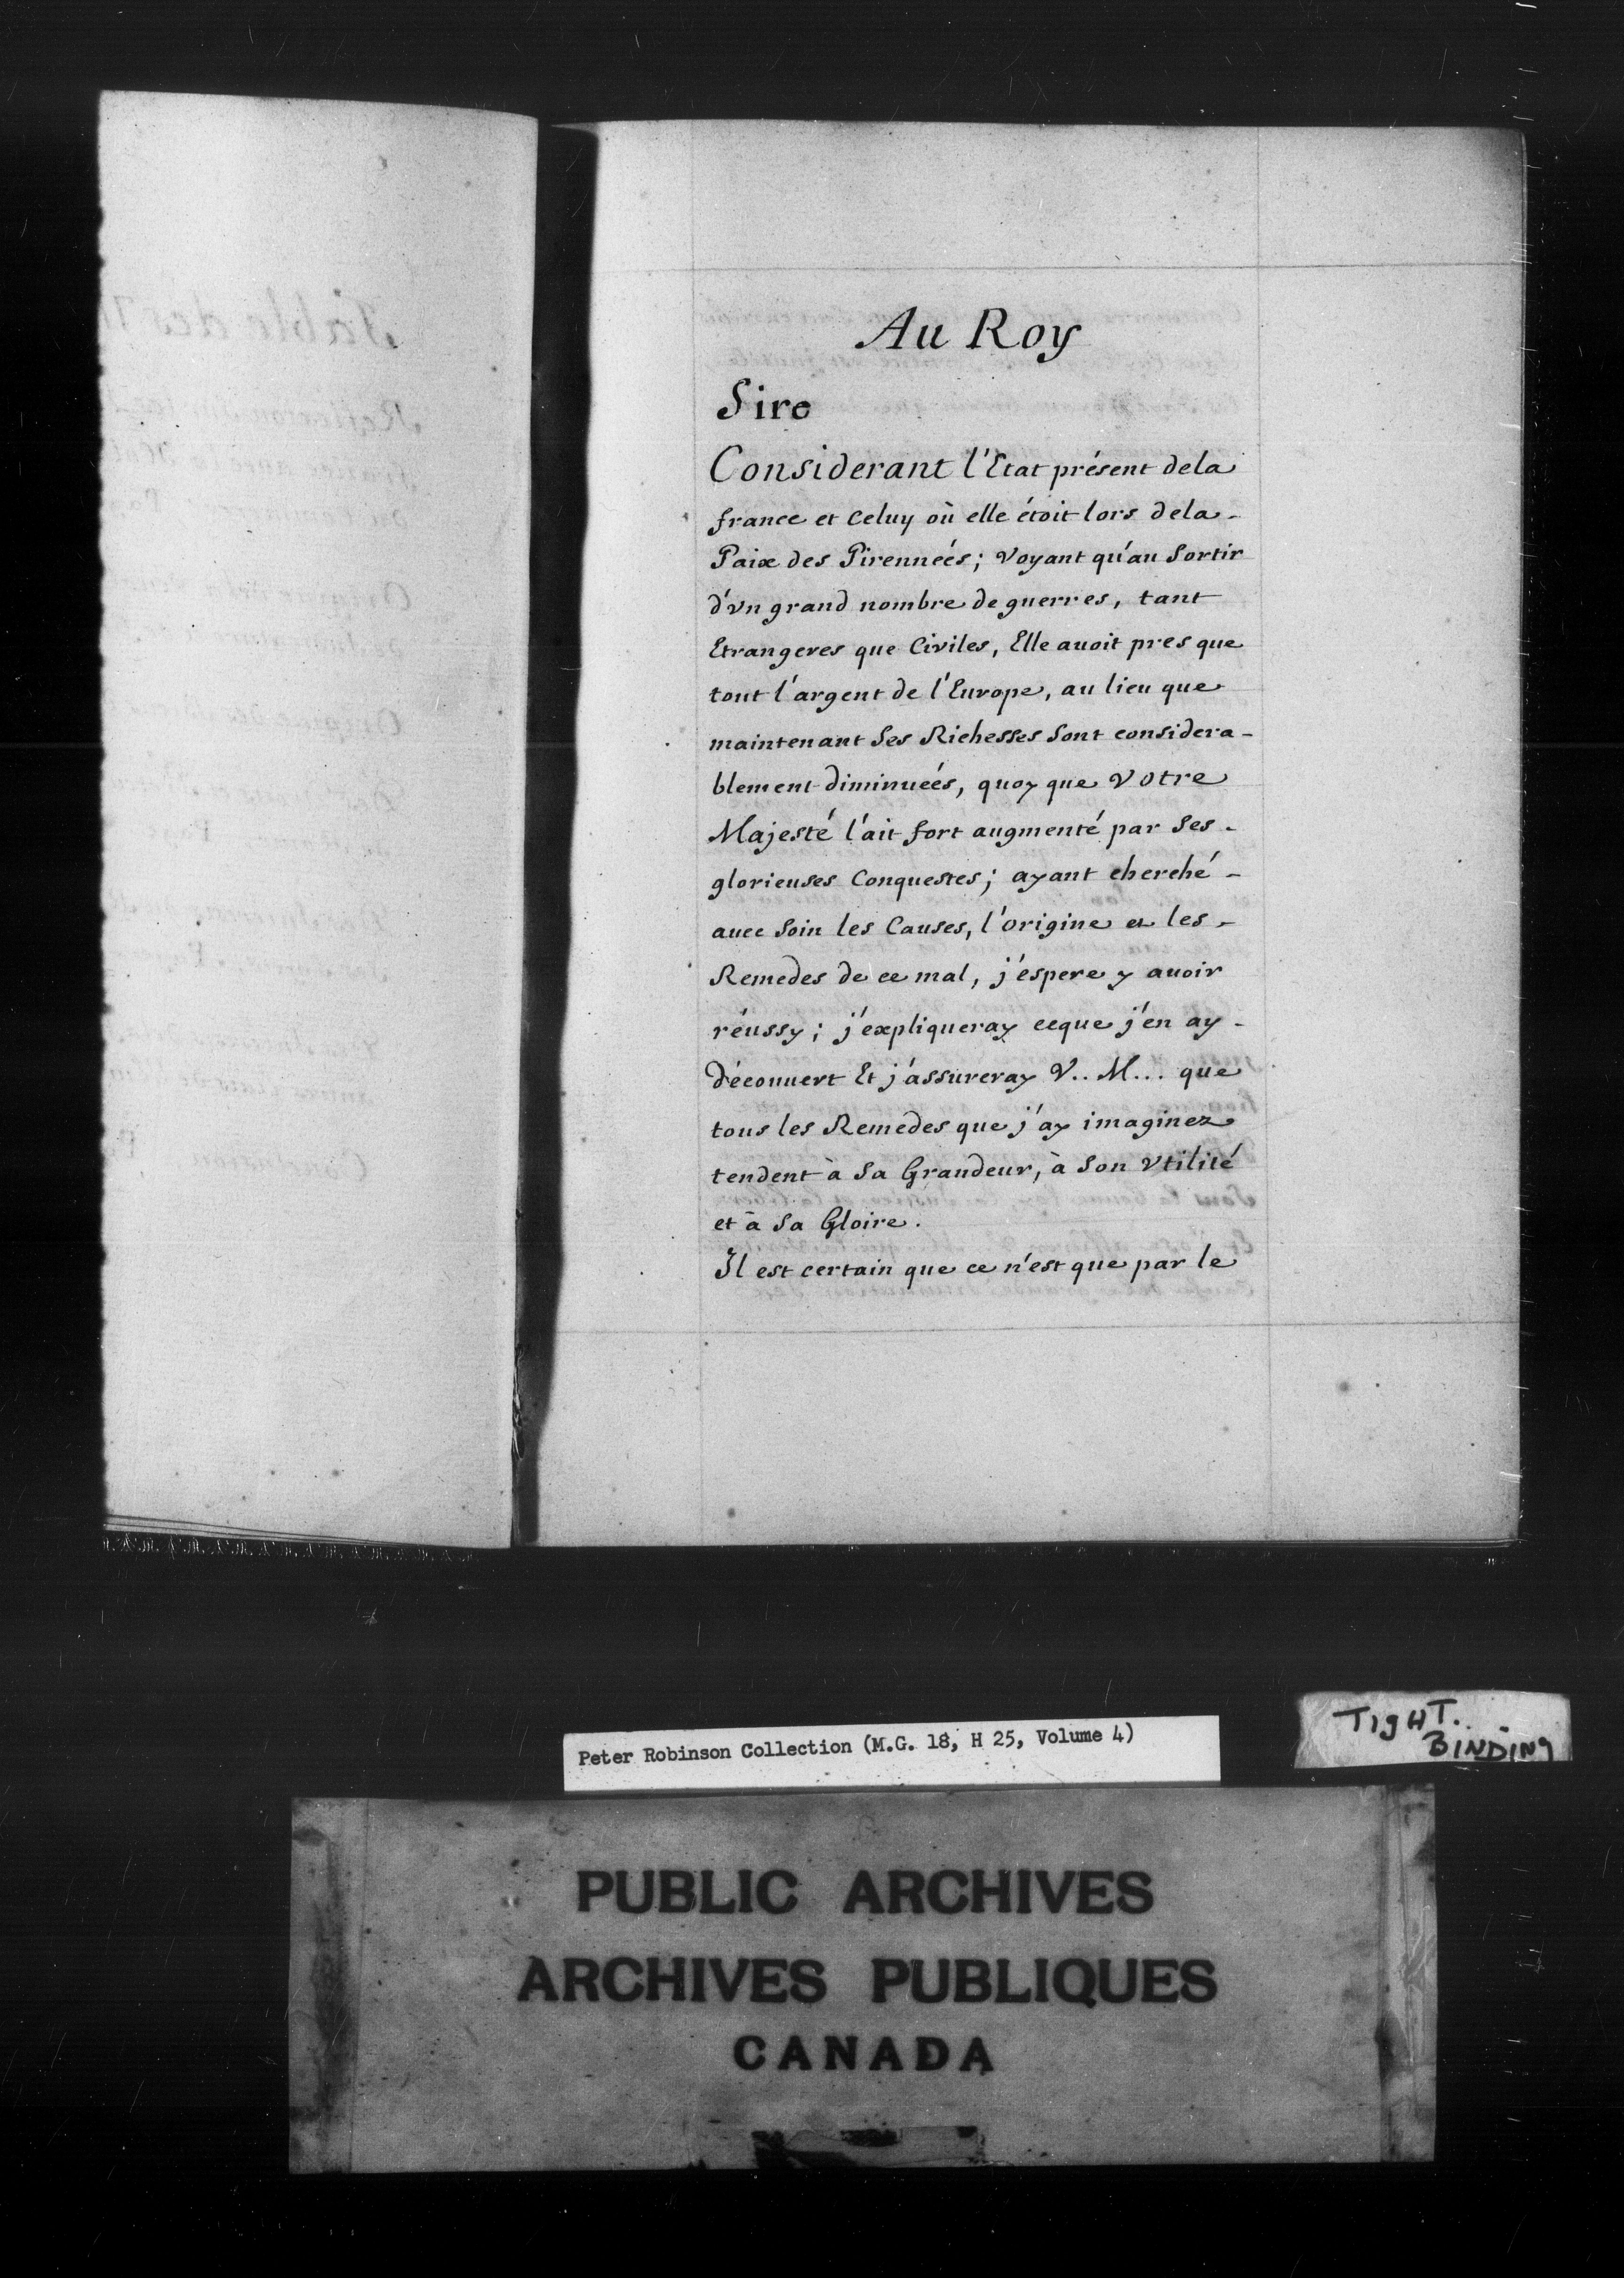 Au Roy
Sire
Considerant l'Etat présent dela
france et Celuy où elle étoit lors dela-
Paix des Pirenneés; Voyant qu'au Sortir
d'vn grand nombre de guerres, tant
Etrangeres que Civiles, Elle auoit pres que
tout l'argent de l'Europe, au lieu que
maintenant Ses Richesses Sont considera-
blement diminueés, quoy que Votre
Majesté l'ait fort augmenté par Ses-
glorieuses Conquestes; ayant cherché-
auec Soin les Causes, l'origine et les-
Remedes de ce mal, j'espere y auoir
réussy; j'expliqueray ceque j'en ay-
déconuert Et j'assureray V.. M... que
tous les Remedes que j'ay imaginez
tendent à Sa Grandeur, à Son Vtilité
et à Sa Gloire.
Il est certain que ce n'est que par le
Peter Robinson Collection (M.G. 18, H 25, Volume 4)
TIgHT.
BINDINg
PUBLIC ARCHIVES
ARCHIVES PUBLIQUES
CANADA